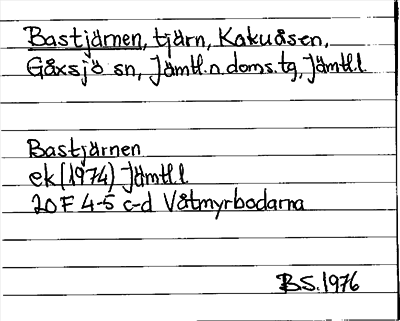 Bastjärnen, tjärn, Kakuåsen,
Gåxsjö sn, Jämtl.n.doms.tg, Jämtl.l
Bastjärnen
ek (1974) Jämtl.l
20 F 4-5 c-d Våtmyrbodarna
B.S. 1976